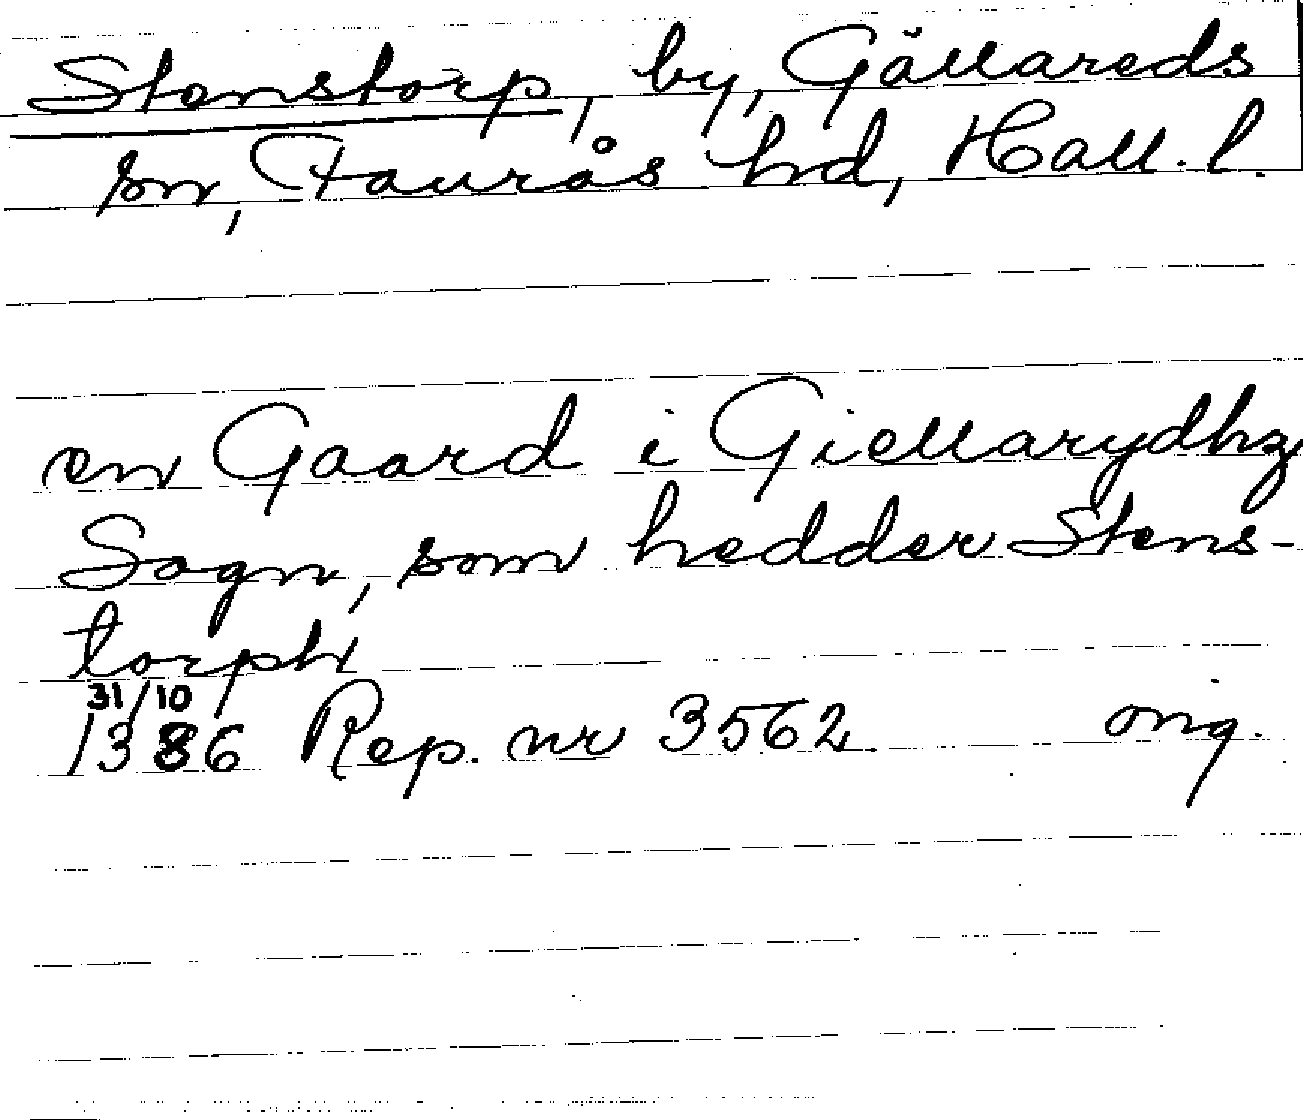 Stenstorp, by, Gällareds
sn, Faurås hd, Hall. l.
en Gaard i Giellarydhz
Sogn, som hedder Stens-
torph
31/10
1386 Rep. nr 3562 ong.